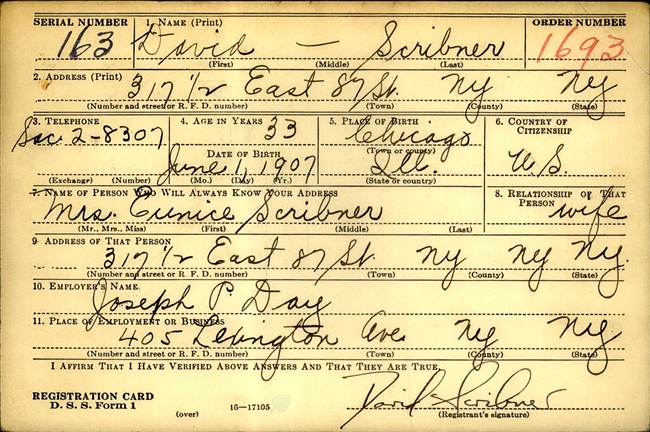 SERIAL NUMBER 1. NAME (Print) ORDER NUMBER
163 David — Scribner 1693
(First) (Middle) (Last)
2. ADDRESS (Print)
317 1/2 East 87 St. NY NY
(Number and street or R. F. D. number) (Town) (County) (State)
3. TELEPHONE 4. AGE IN YEARS 5. PLACE OF BIRTH 6. COUNTRY OF CITIZENSHIP
Sac. 2-8307 33 Chicago
(Town or county)
DATE OF BIRTH
June 1, 1907 Ill. U.S.
(Exchange) (Number) (Mo.) (Day) (Yr.) (State or country)
7. NAME OF PERSON WHO WILL ALWAYS KNOW YOUR ADDRESS 8. RELATIONSHIP OF THAT PERSON
Mrs. Eunice Scribner wife
(Mr., Mrs., Miss) (First) (Middle) (Last)
9. ADDRESS OF THAT PERSON
317 1/2 East 87 St. NY NY NY.
(Number and street or R. F. D. number) (Town) (County) (State)
10. EMPLOYER'S NAME
Joseph P. Day
11. PLACE OF EMPLOYMENT OR BUSINESS
405 Lexington Ave. NY NY
(Number and street or R. F. D. number) (Town) (County) (State)
I AFFIRM THAT I HAVE VERIFIED ABOVE ANSWERS AND THAT THEY ARE TRUE.
REGISTRATION CARD David Scribner
D. S. S. Form 1 (over) 16—17105 (Registrant's signature)